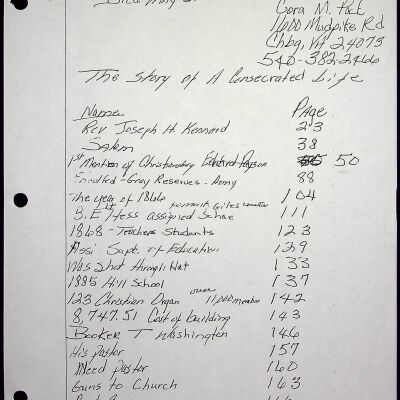 Cora M. Pack
1600 Mudpike Rd
Chbg, VA 24073
540-382-2466
The Story of A Consecrated Life
Name Page
Rev Joseph H Kennard 23
Salem 38
1st Mention of Christiansburg 50
Enrolled - Gray Reserves - Army 88
The year of 1866 104
B. E. Hess assigned 111
1868 - Teachers Students 123
Assi Supt. of Education 129
Was Shot through Hat 133
1885 Hill School 137
123 Christian Organ over 11,000 members 142
8,747.51 Cost of building 143
Booker T Washington 146
His pastor 157
Need pastor 160
Guns to Church 163